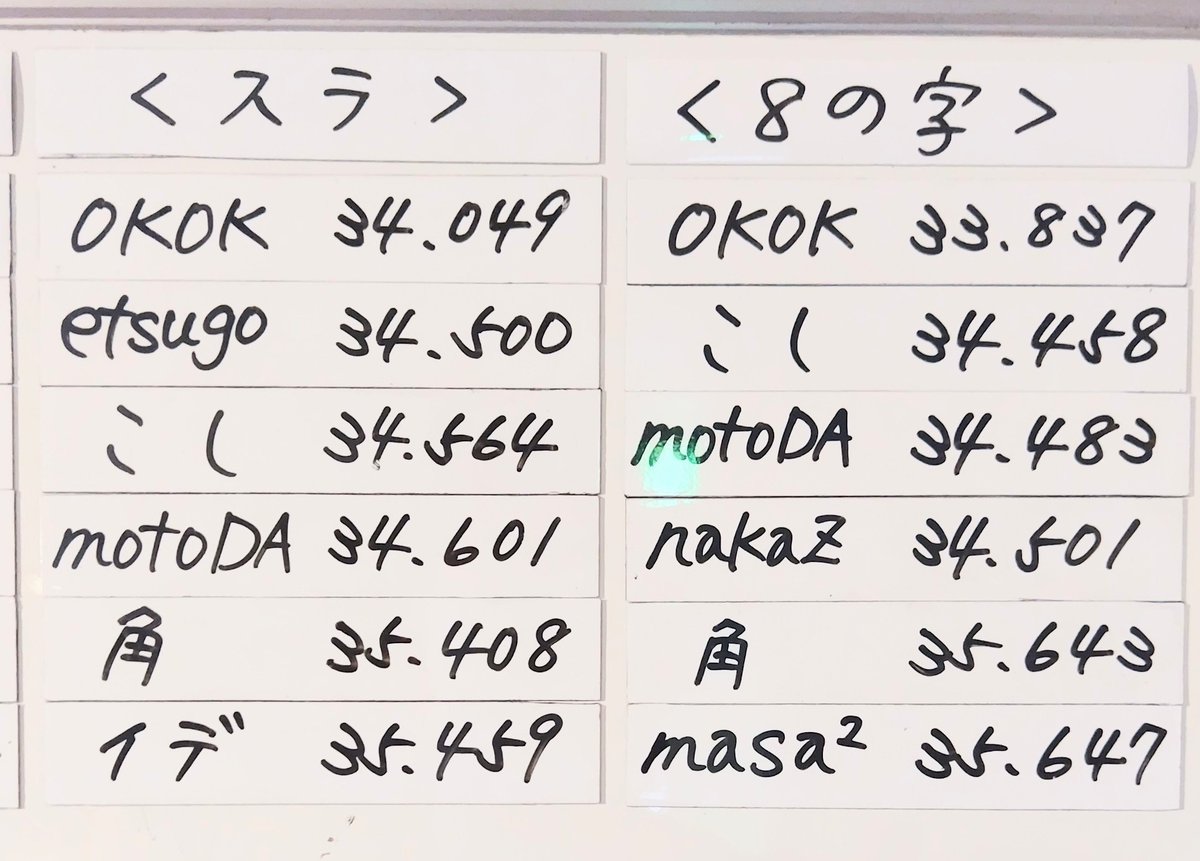 <スラ>
OKOK 34.049
etsugo 34.500
こし 34.564
motoDA 34.601
角 35.408
イデ 35.459
<8の字>
OKOK 33.837
こし 34.458
motoDA 34.483
nakaZ 34.501
角 35.643
masa² 35.647